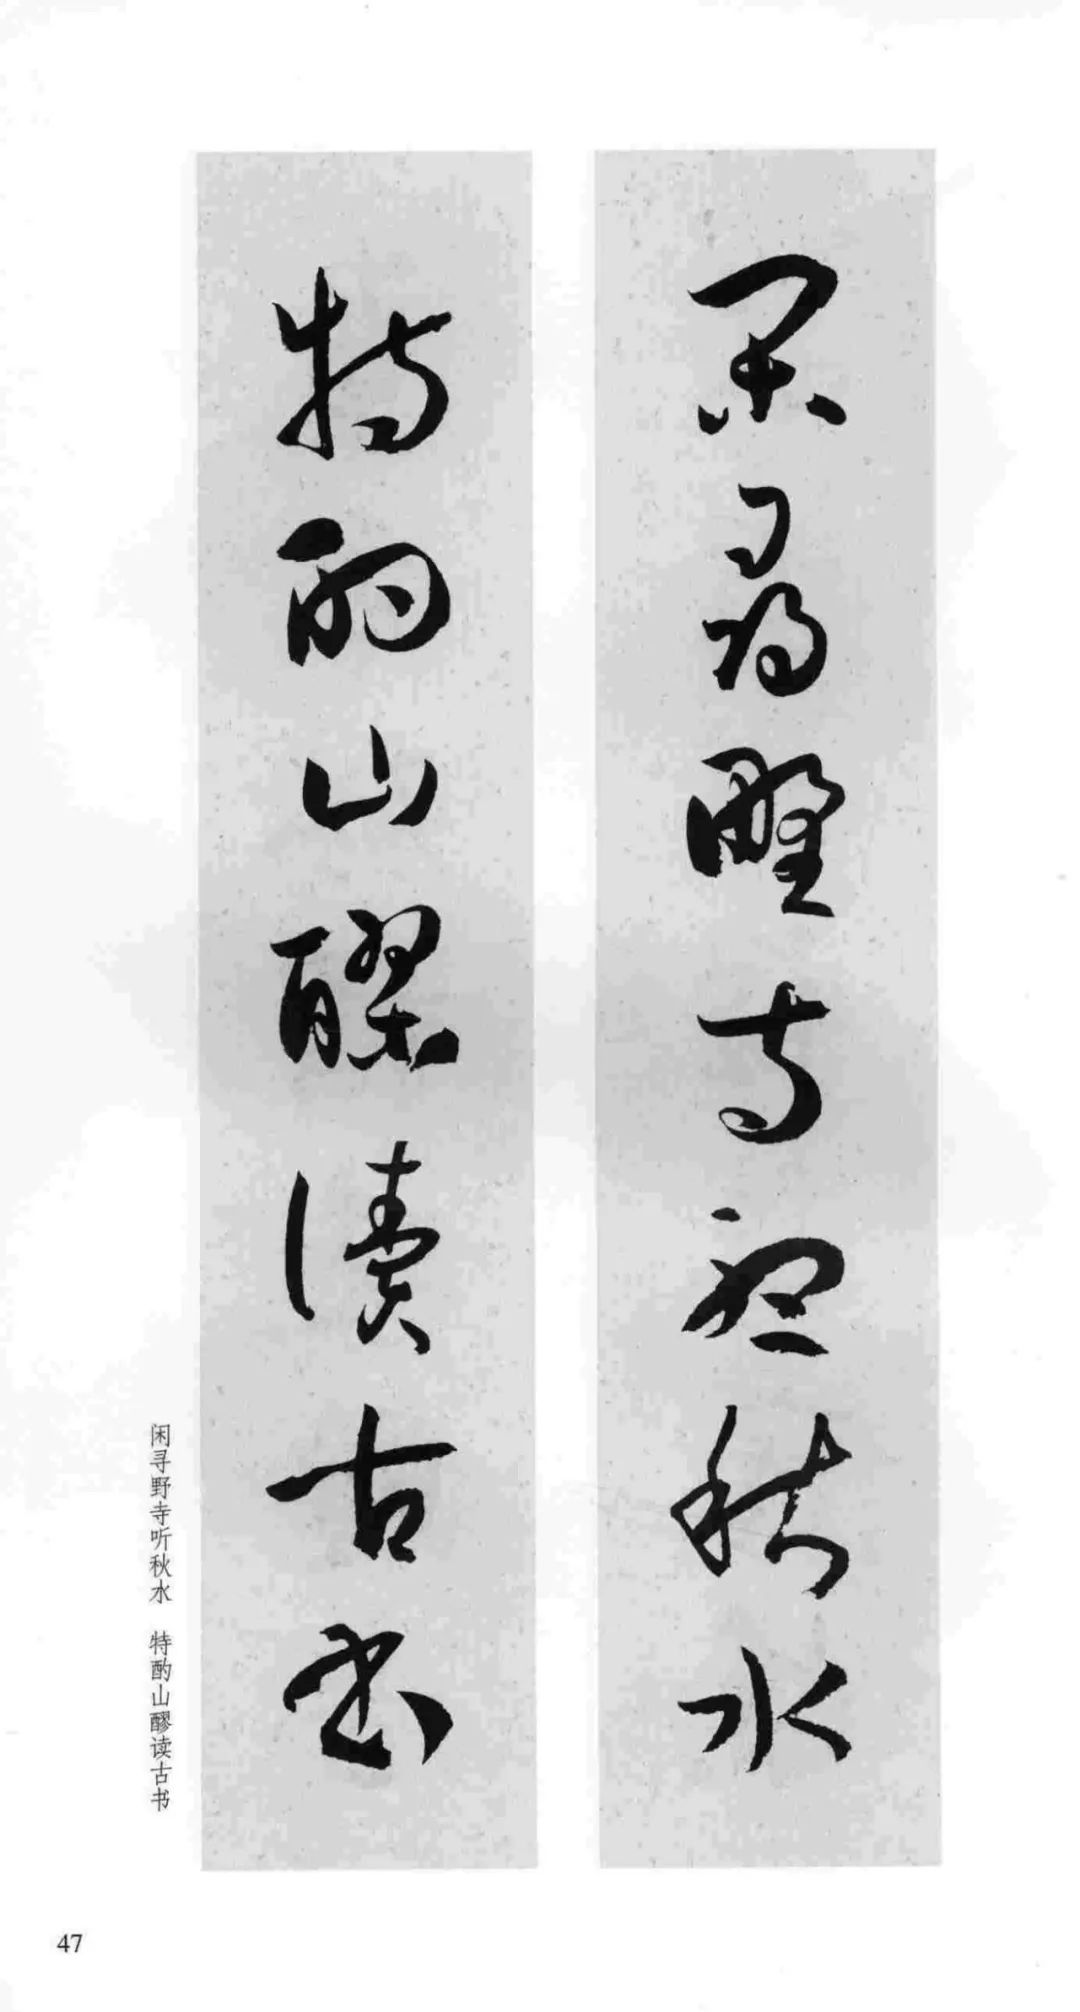 闲寻野寺听秋水
特酌山醪读古书
闲寻野寺听秋水　特酌山醪读古书
47